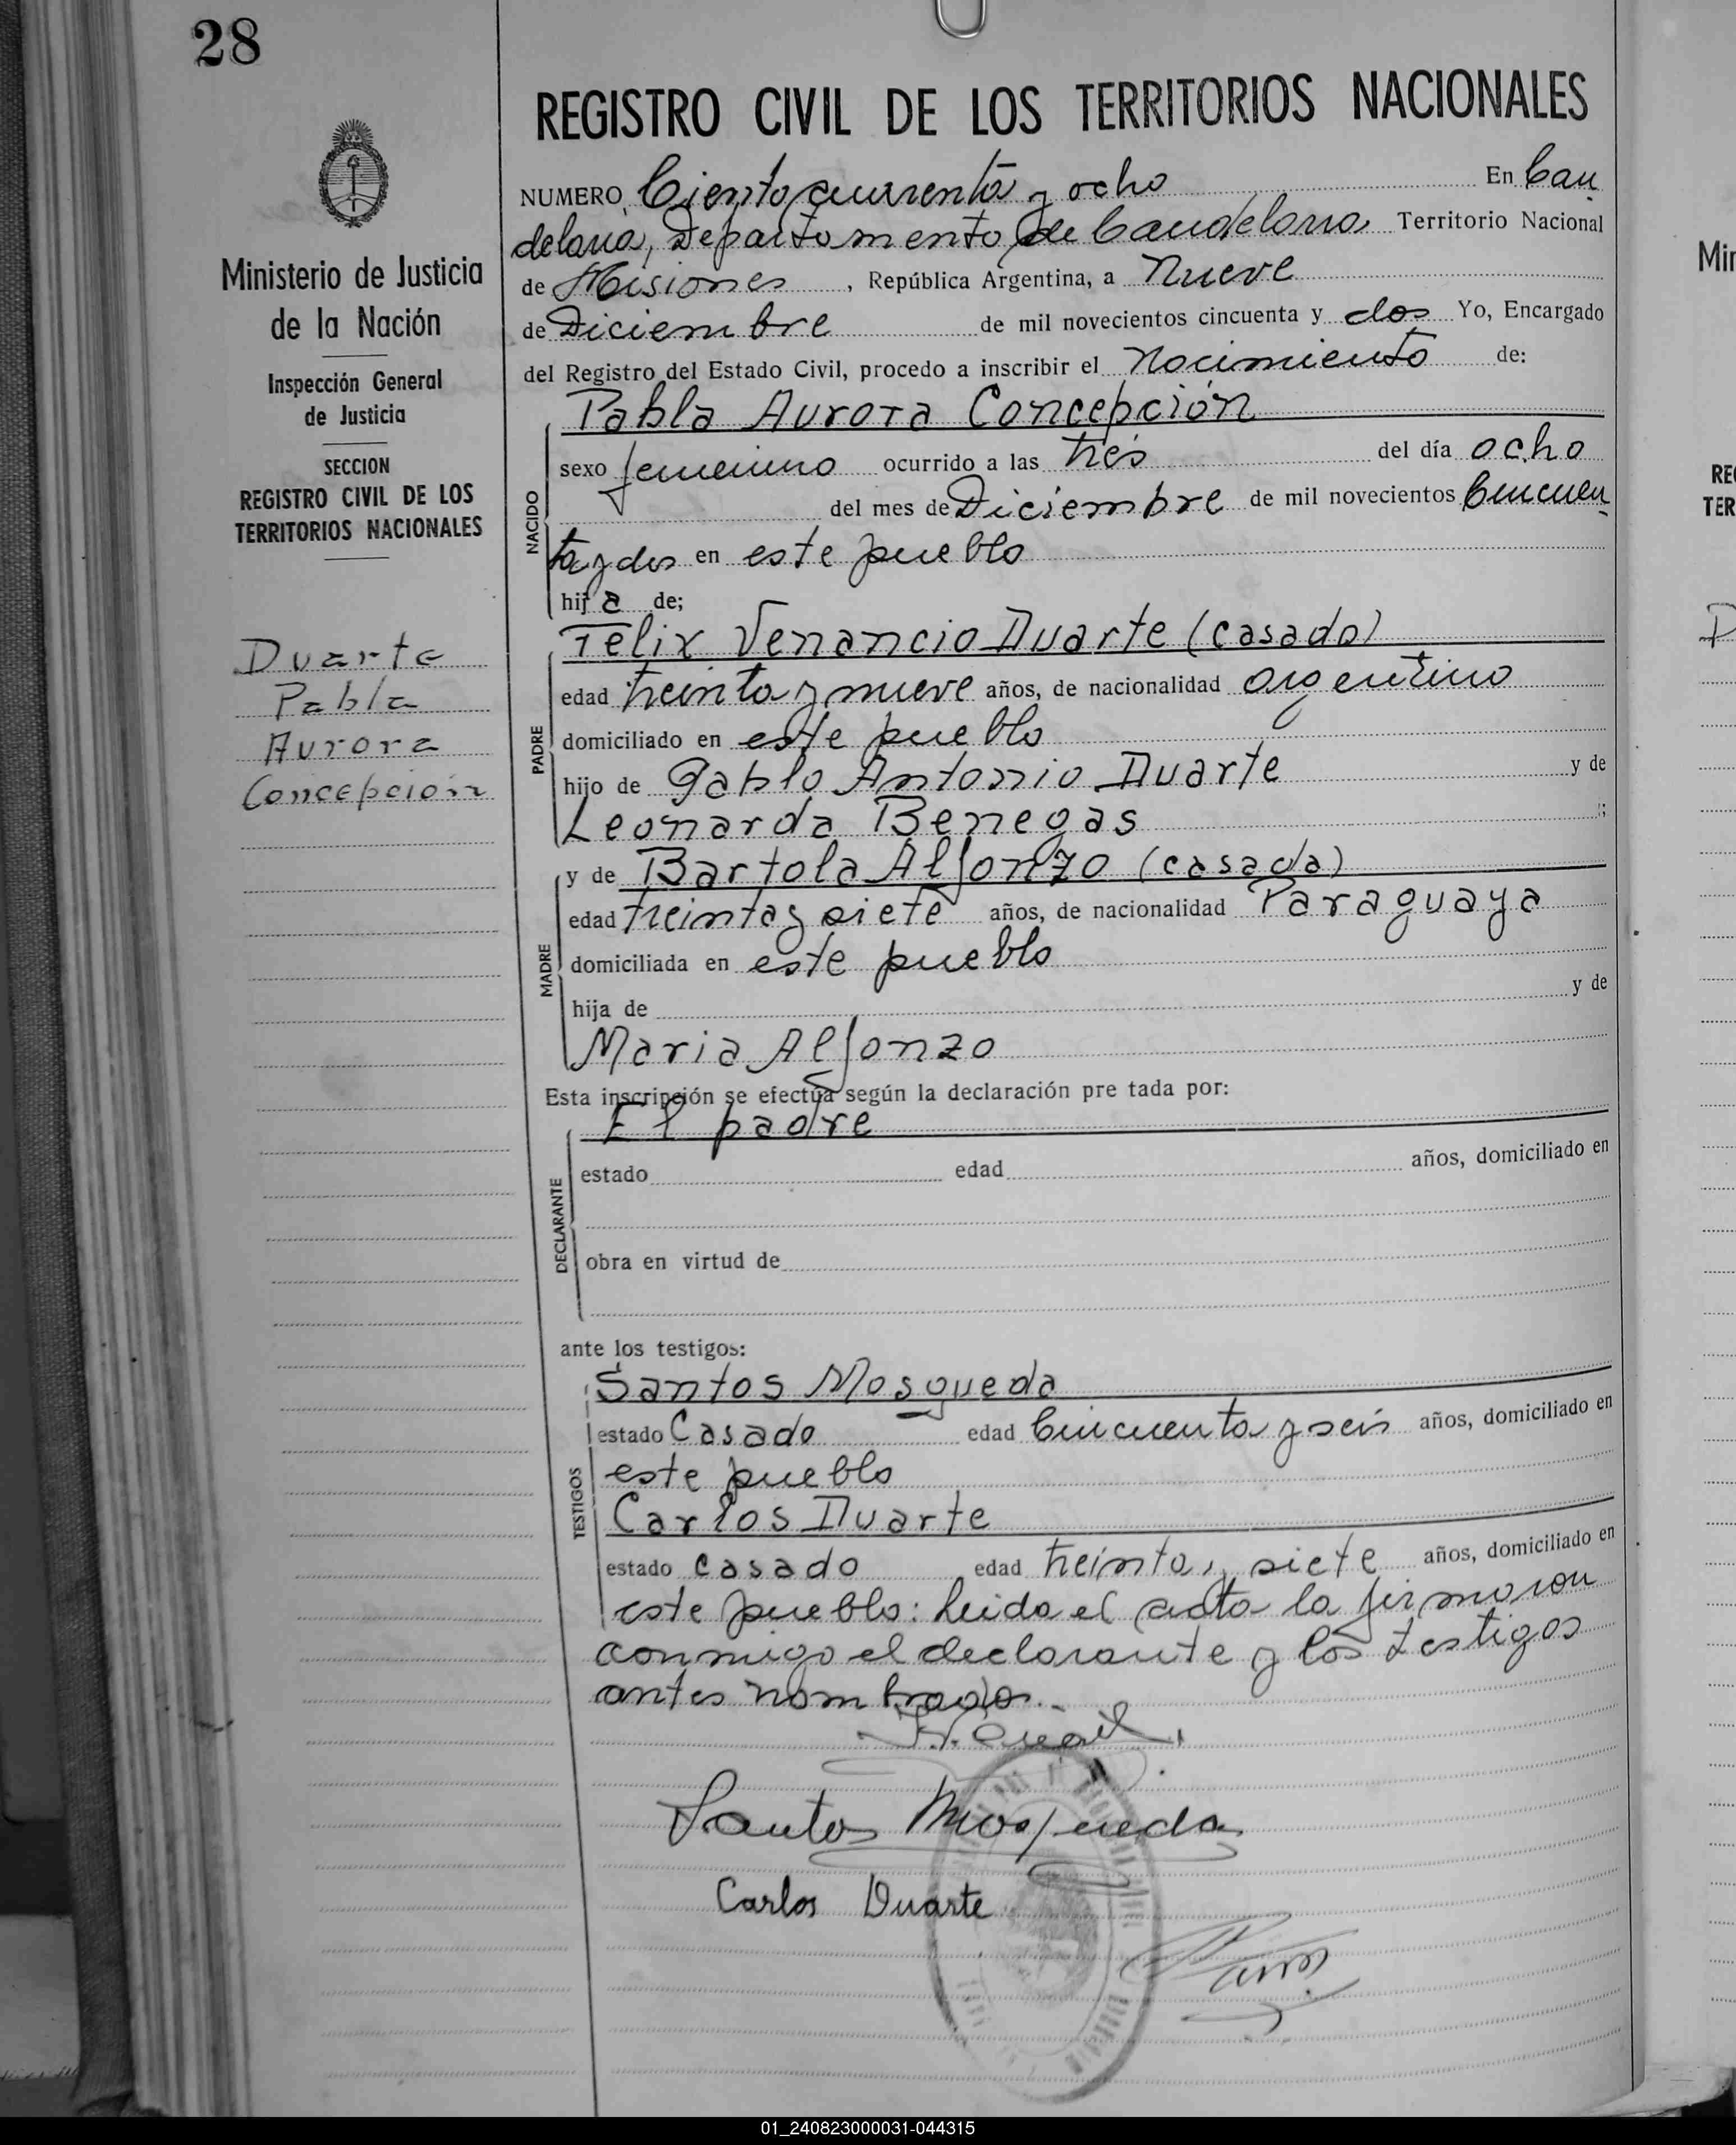 28
REGISTRO CIVIL DE LOS TERRITORIOS NACIONALES
NUMERO Ciento cuarenta y ocho En Can
delaria, Departamento de Candelaria Territorio Nacional
de Misiones, República Argentina, a Nueve
de Diciembre de mil novecientos cincuenta y dos Yo, Encargado
del Registro del Estado Civil, procedo a inscribir el Nacimiento de:
Pabla Aurora Concepción
sexo femenino ocurrido a las tres del día ocho
del mes de Diciembre de mil novecientos Cincuen
ta y dos en este pueblo
hij a de;
NACIDO
Felix Venancio Duarte (casado)
edad treinta y nueve años, de nacionalidad argentino
domiciliado en este pueblo
hijo de Pablo Antonio Duarte y de
Leonarda Benegas ;
PADRE
y de Bartola Alfonzo (casada)
edad treinta y siete años, de nacionalidad Paraguaya
domiciliada en este pueblo
hija de y de
Maria Alfonzo
MADRE
Esta inscripción se efectúa según la declaración pre tada por:
El padre
estado edad años, domiciliado en
obra en virtud de
DECLARANTE
ante los testigos:
Santos Mosqueda
estado Casado edad Cincuenta y seis años, domiciliado en
este pueblo
Carlos Duarte
estado casado edad treinta y siete años, domiciliado en
este pueblo: leida el acta la firmaron
TESTIGOS
conmigo el declarante y los testigos
antes nombrados.
Santos Mosqueda
Carlos Duarte
Ministerio de Justicia
de la Nación
Inspección General
de Justicia
SECCION
REGISTRO CIVIL DE LOS
TERRITORIOS NACIONALES
Duarte
Pabla
Aurora
Concepción
Min
REG
TER
01_240823000031-044315